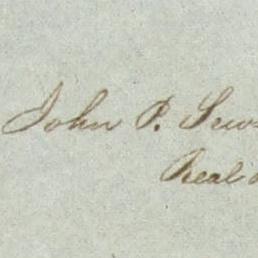 John P. Sew
Real